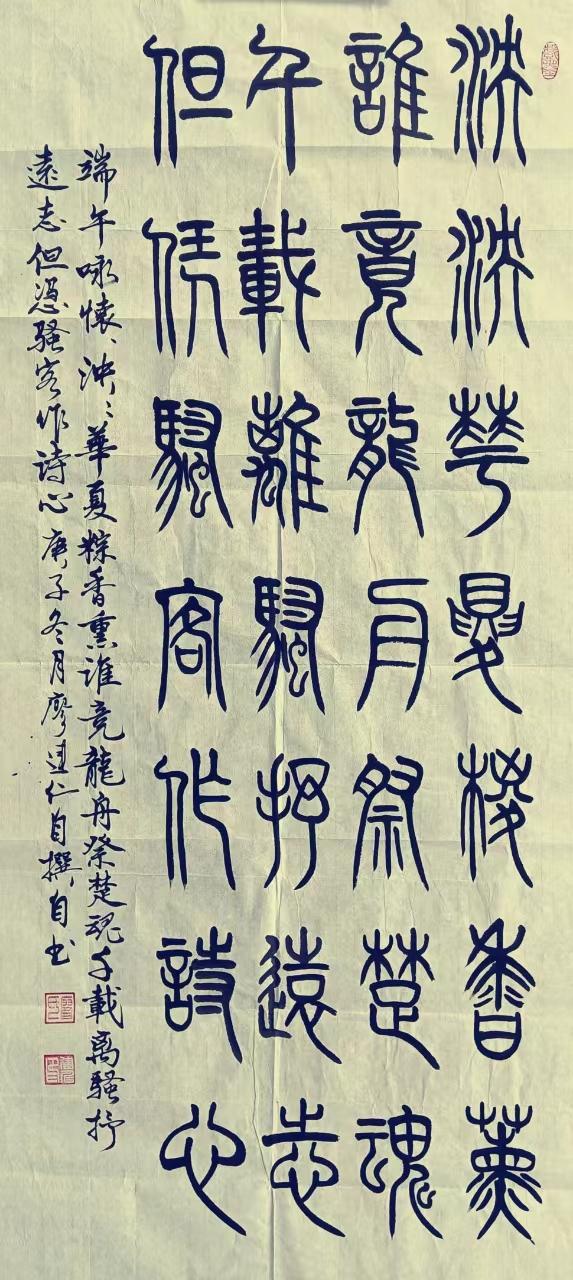 泱泱華夏粽香薰
誰竟龍舟祭楚魂
千載離騷抒遠志
但凭騷客作詩心
端午咏懷、泱泱華夏粽香熏誰竞龍舟祭楚魂千載离騷抒
遠志但憑騷客作詩心庚子冬月廖建仁自撰自书